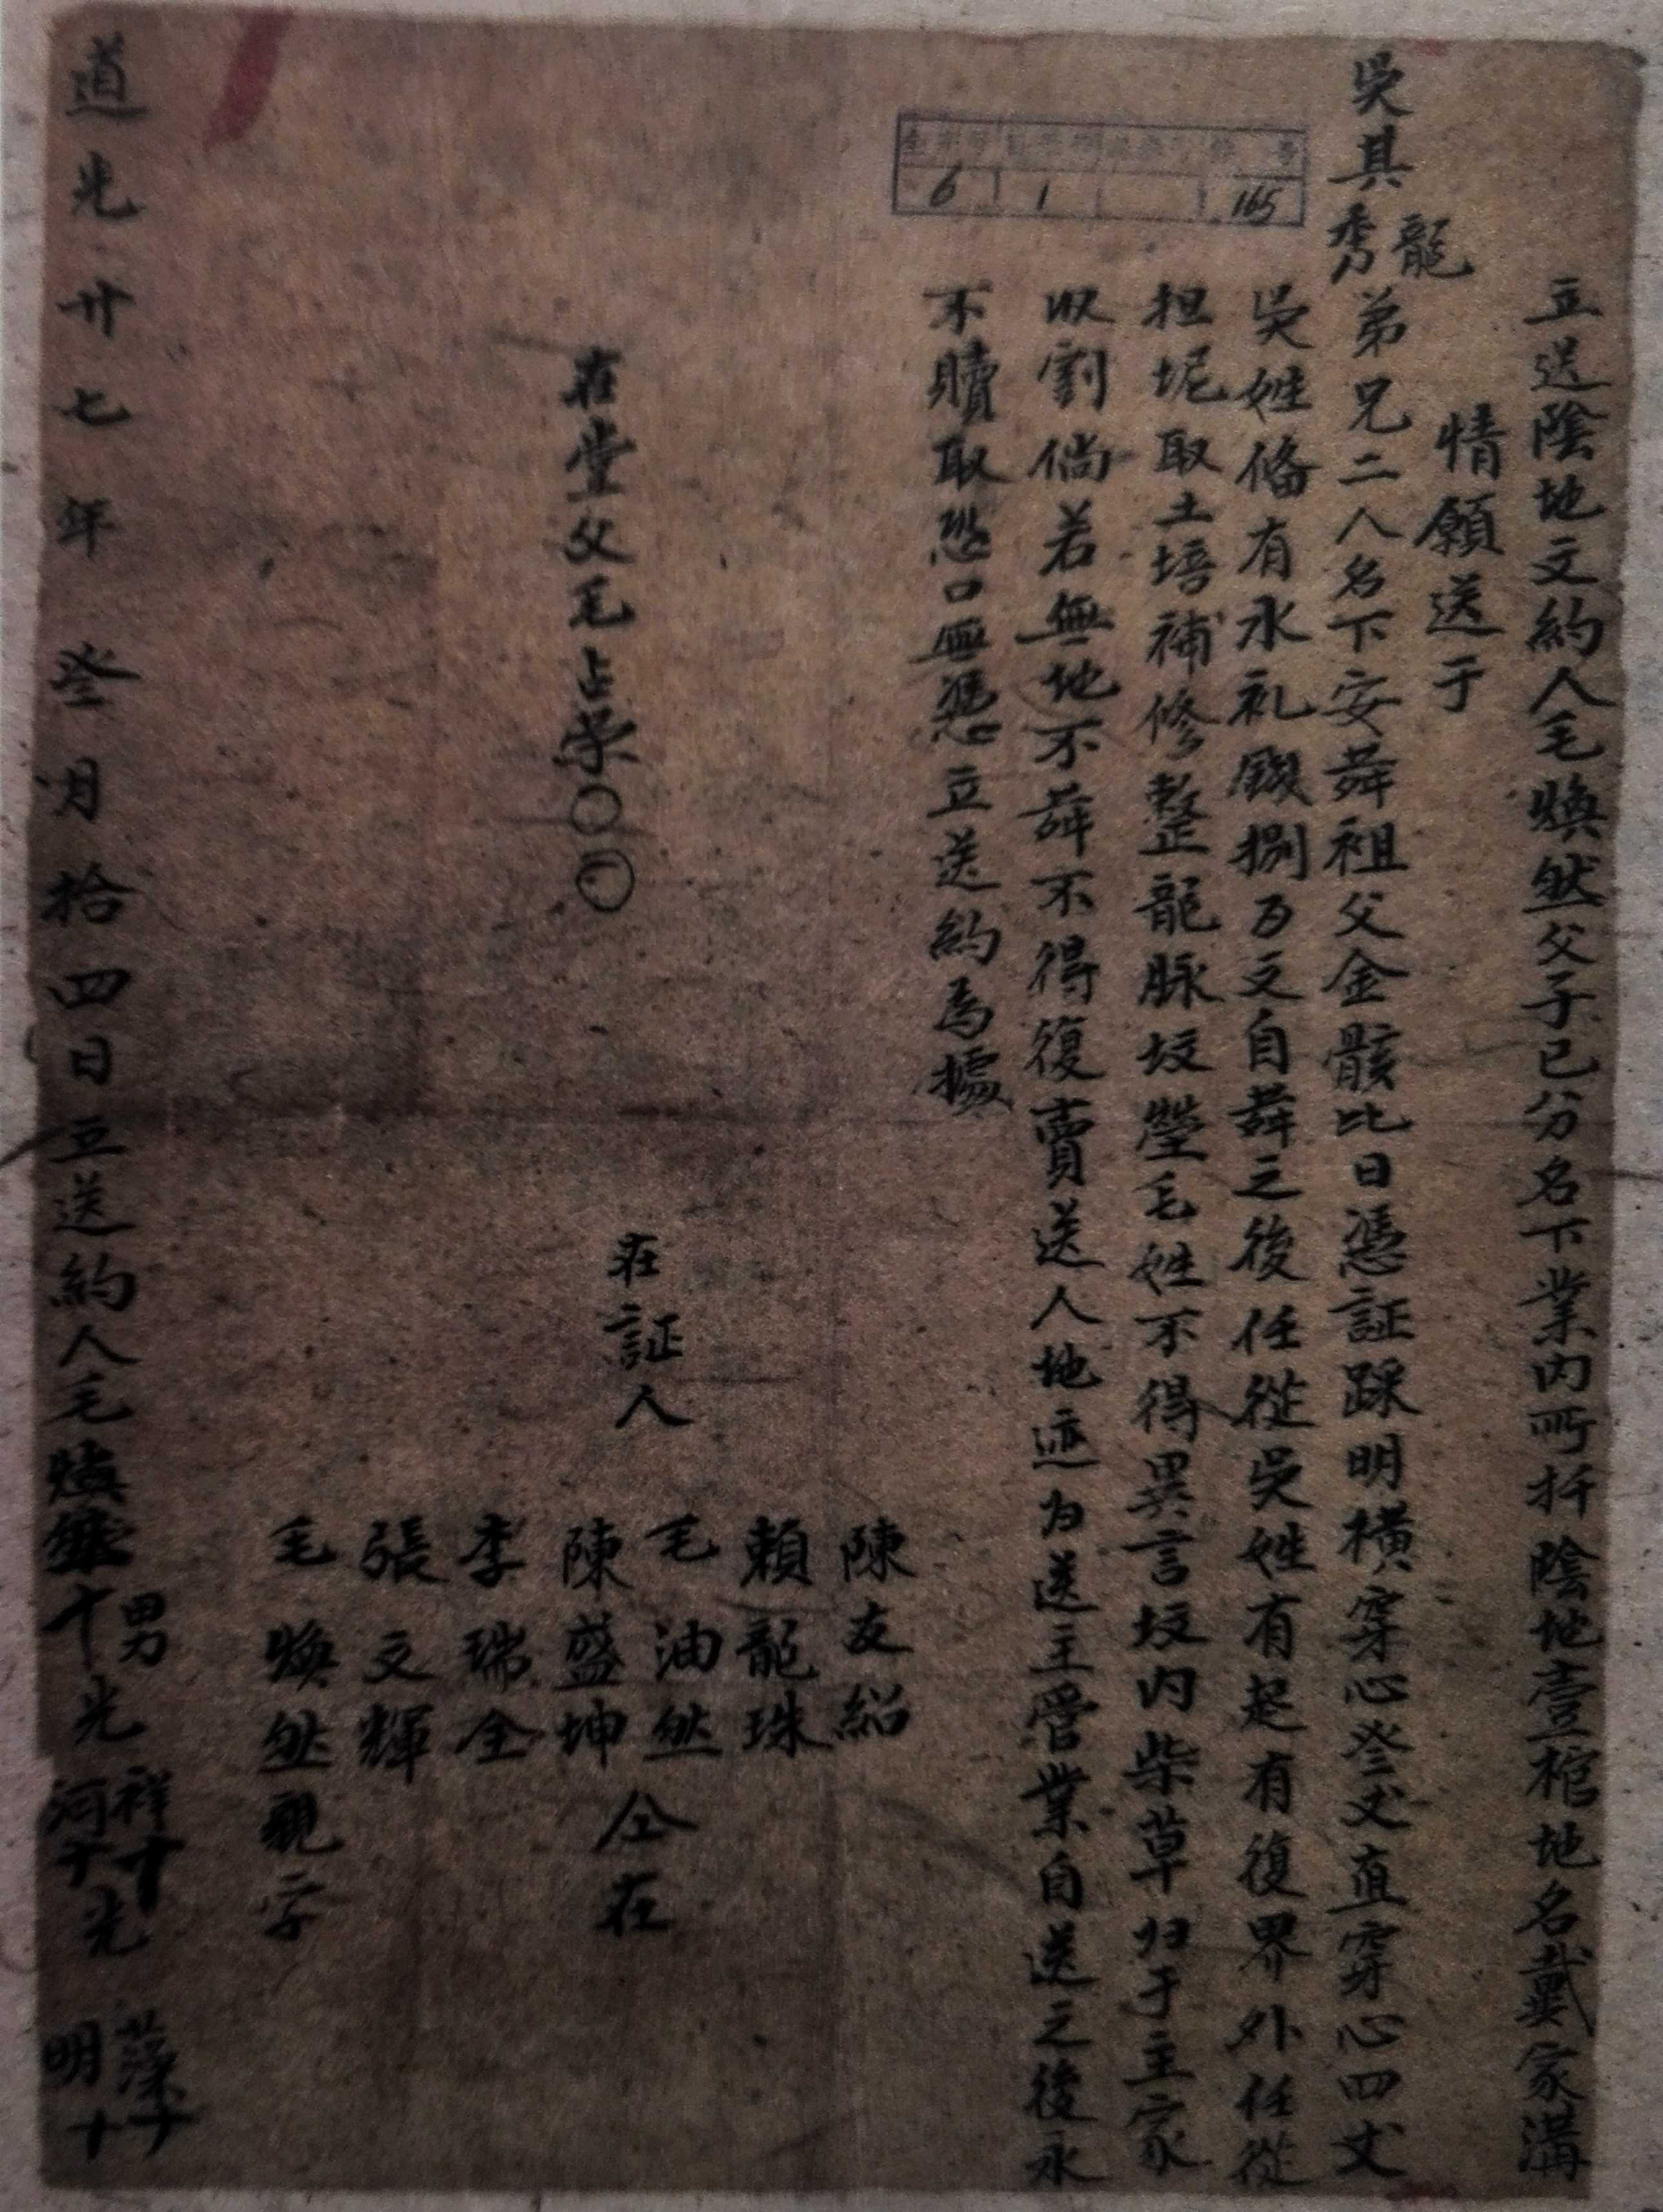 立送陰地文約人毛煥然父子已分名下業內所扦陰地壹棺地名戴家溝
情願送于
吳其龍秀弟兄二人名下安葬祖父金骸比日憑証踩明橫穿心叄丈直穿心四丈
吳姓俻有水礼錢捌百文自葬之後任從吳姓有起有復界外任從
担坭取土培補修整龍脉坟塋毛姓不得異言坟內柴草歸于主家
收割倘若無地不葬不得復賣送人地迹为送主管業自送之後永
不贖取恐口無憑立送約為據
6 1 165
在堂父毛占榮〇〇
在証人
陳友紹
賴龍珠
毛油然
陳盛坤
仝在
李瑞全
張文輝
毛煥然親字
道光廿七年叄月拾四日立送約人毛煥然十男光祥十光河十藻十明十